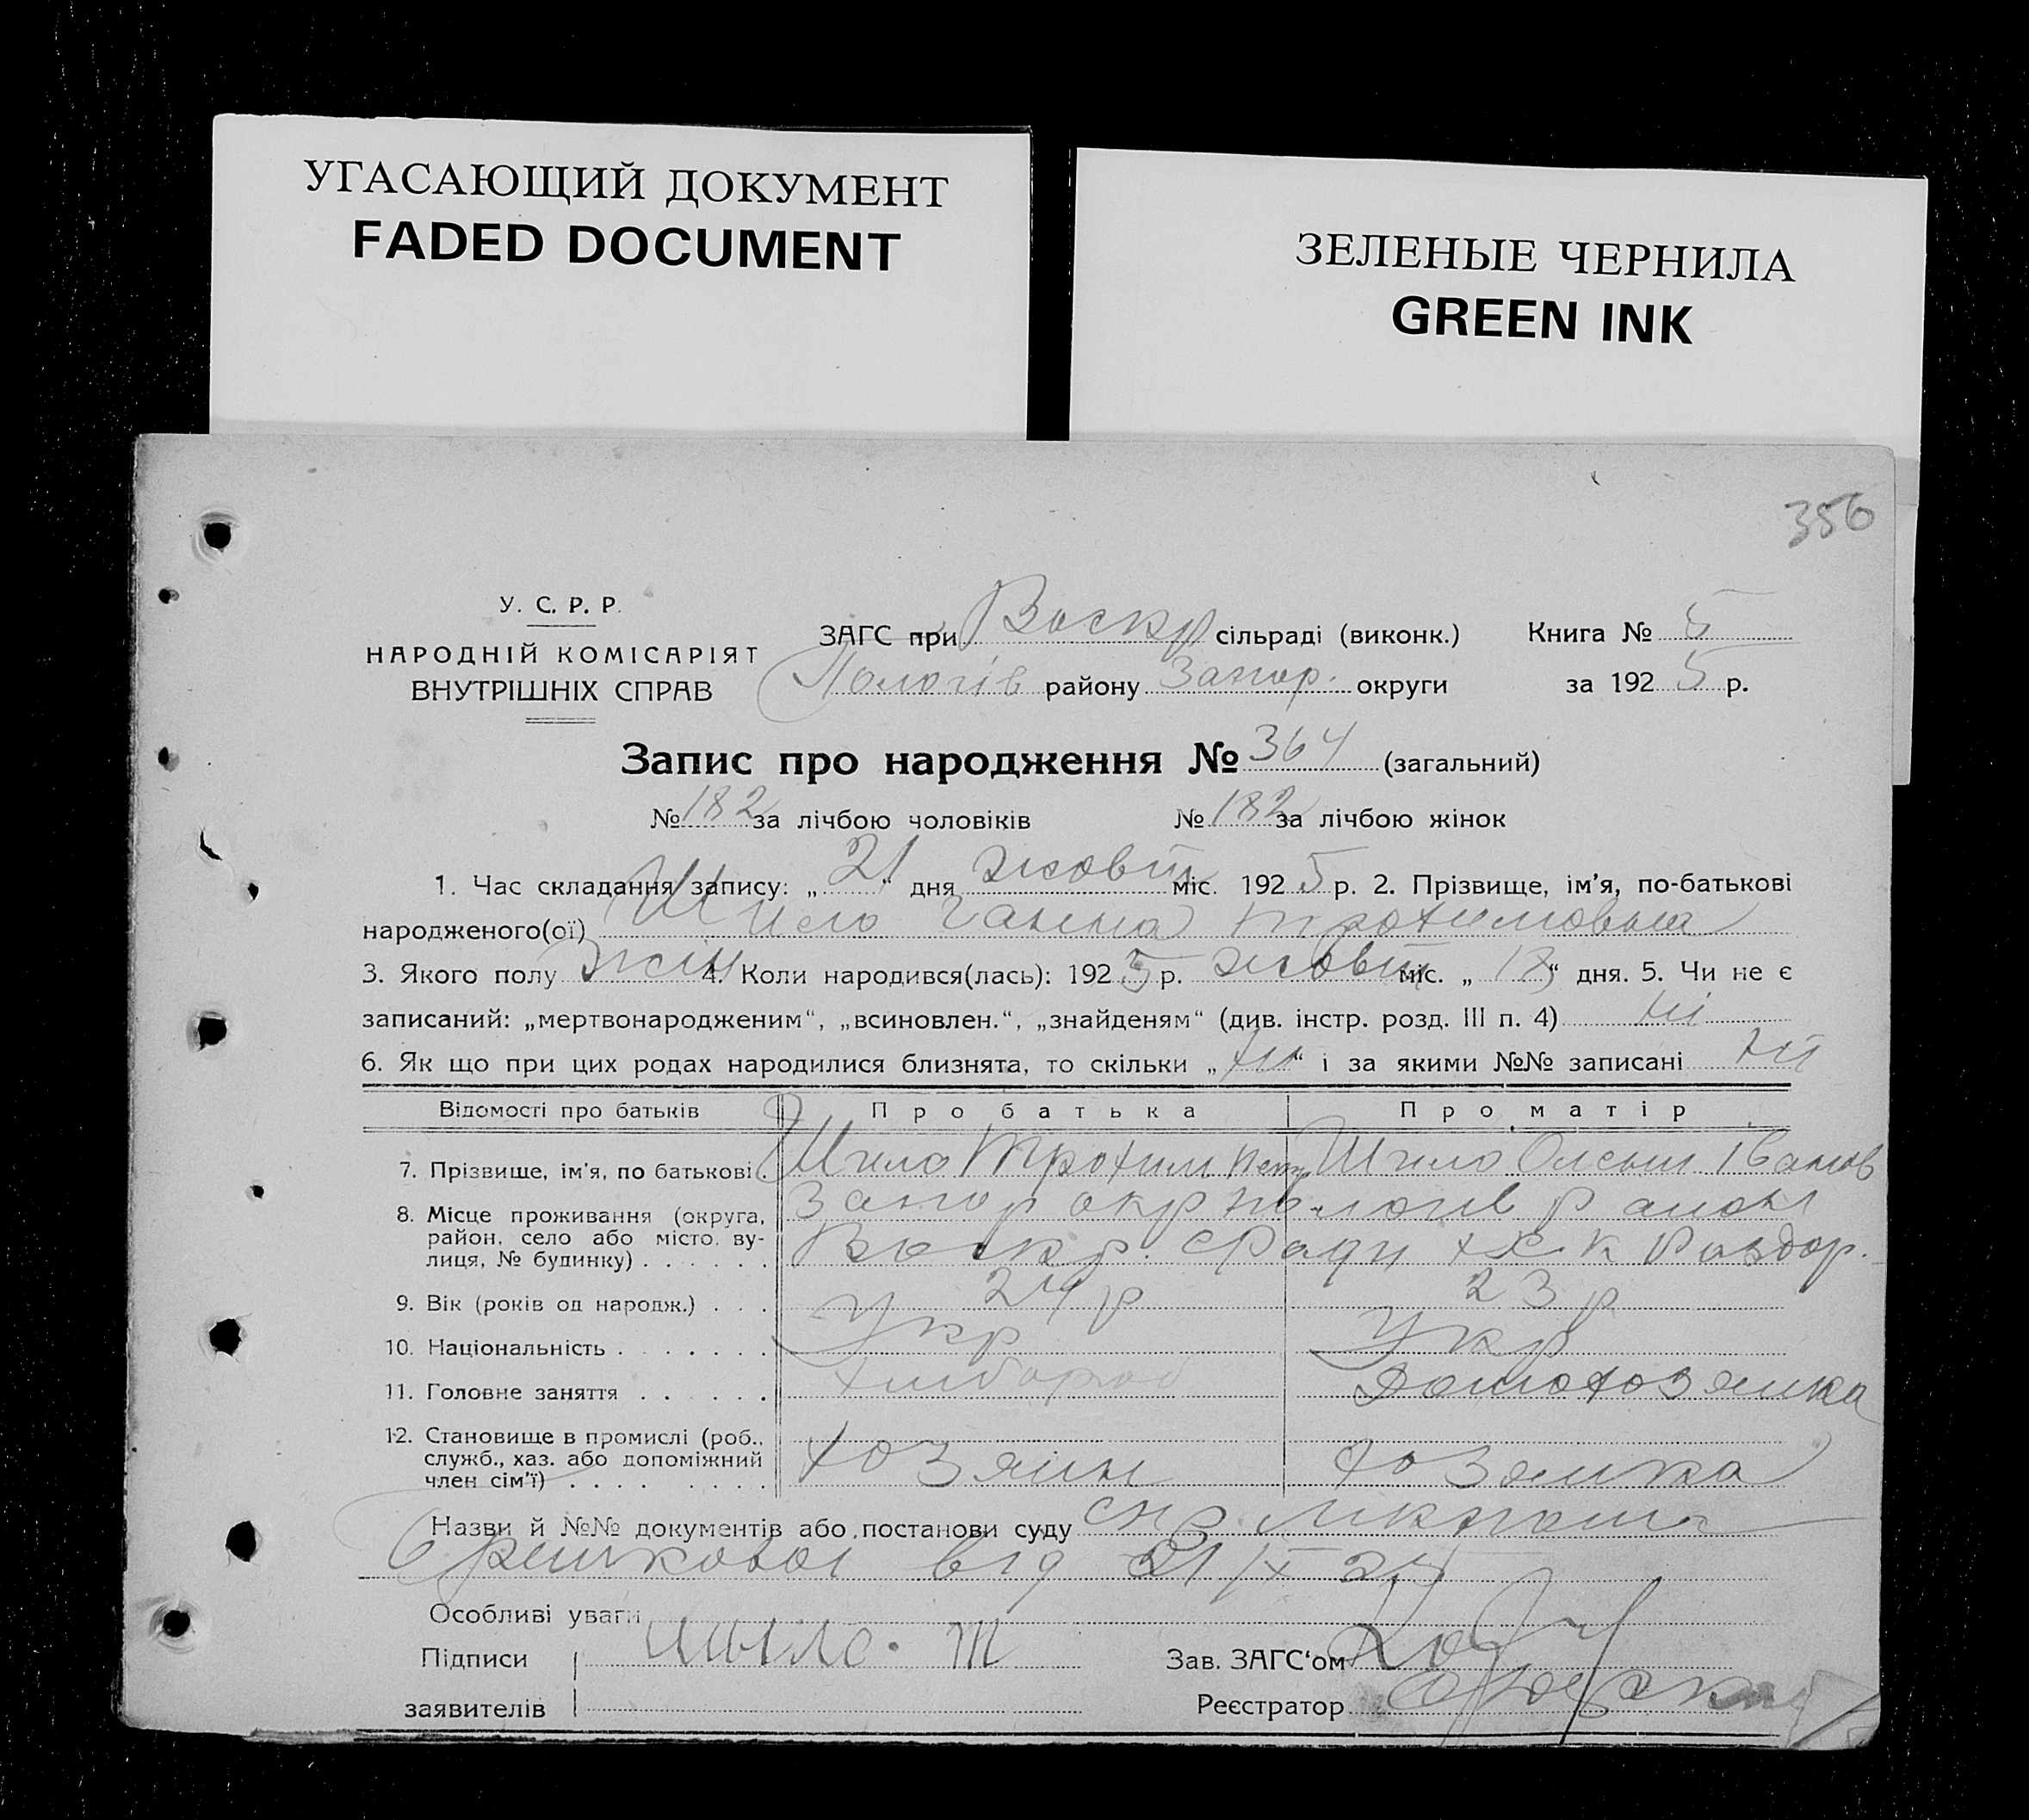 УГАСАЮЩИЙ ДОКУМЕНТ
FADED DOCUMENT
ЗЕЛЕНЫЕ ЧЕРНИЛА
GREEN INK
356
У. С. Р. Р.
НАРОДНІЙ КОМІСАРІЯТ
ВНУТРІШНІХ СПРАВ
ЗАГС при Воскр сільраді (виконк.) Книга № 5
Пологів району Запор. округи за 1925 р.
Запис про народження № 364 (загальний)
№ 182 за лічбою чоловіків № 182 за лічбою жінок
1. Час складання запису: „21“ дня жовт міс. 1925 р. 2. Прізвище, ім’я, по-батькові
народженого(ої) Шило Ганна Трохимовна
3. Якого полу жін 4. Коли народився(лась): 1925 р. жовт міс. „18“ дня. 5. Чи не є
записаний: „мертвонародженим“, „всиновлен.“, „знайденям“ (див. інстр. розд. III п. 4) ні
6. Як що при цих родах народилися близнята, то скільки „ні“ і за якими №№ записані ні
Відомості про батьків Про батька Про матір
7. Прізвище, ім’я, по батькові. Шило Трохим Шило Іванов
8. Місце проживання (округа, район, село або місто, вулиця, № будинку) Запор окр пологів район
Воскр. сРади Роздор.
9. Вік (років од народж.) 24 р 23 р
10. Національність Укр Укр
11. Головне заняття хлібороб Домохозяйка
12. Становище в промислі (роб., служб., хаз. або допоміжний член сім’ї) хозяин хозяйка
Назви й №№ документів або постанови суду
від 21/X 25
Особливі уваги
Підписи заявителів Шыло. Т
Зав. ЗАГС‘ом
Реєстратор